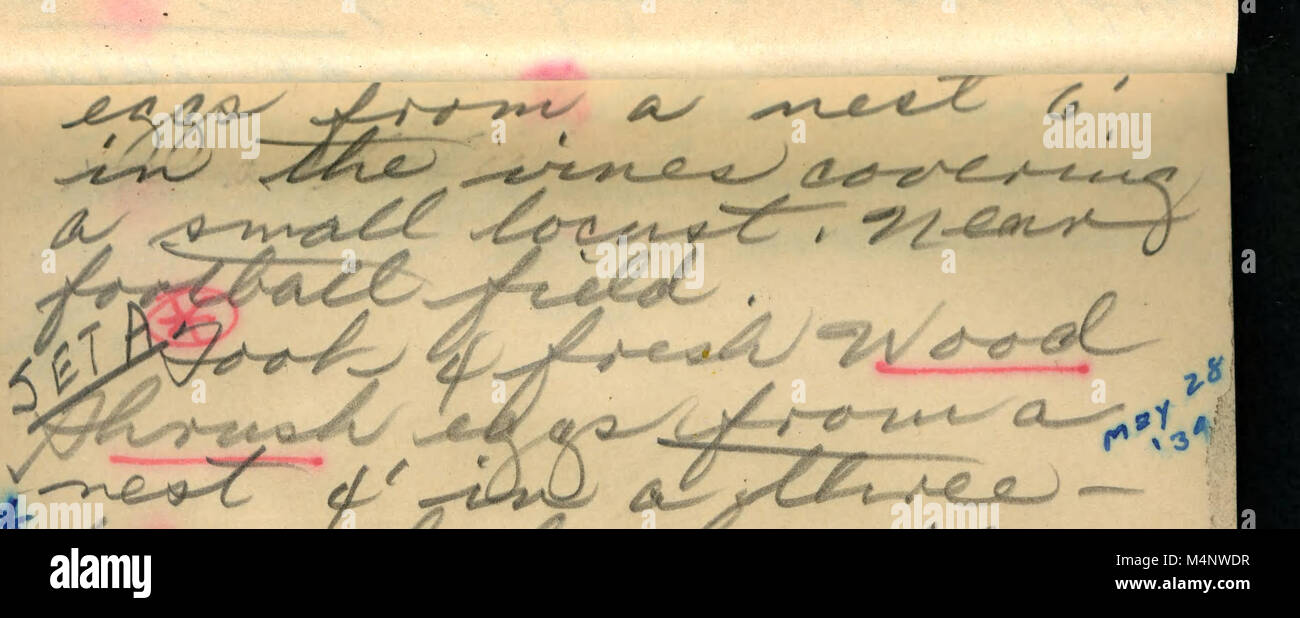 eggs from a nest 6'
in the vines covering
a small locust. Near
football field.
SET A
Took 4 fresh Wood
Thrush eggs from a
May 28
'39
nest 4' in a three-
alamy
Image ID: M4NWDR
www.alamy.com